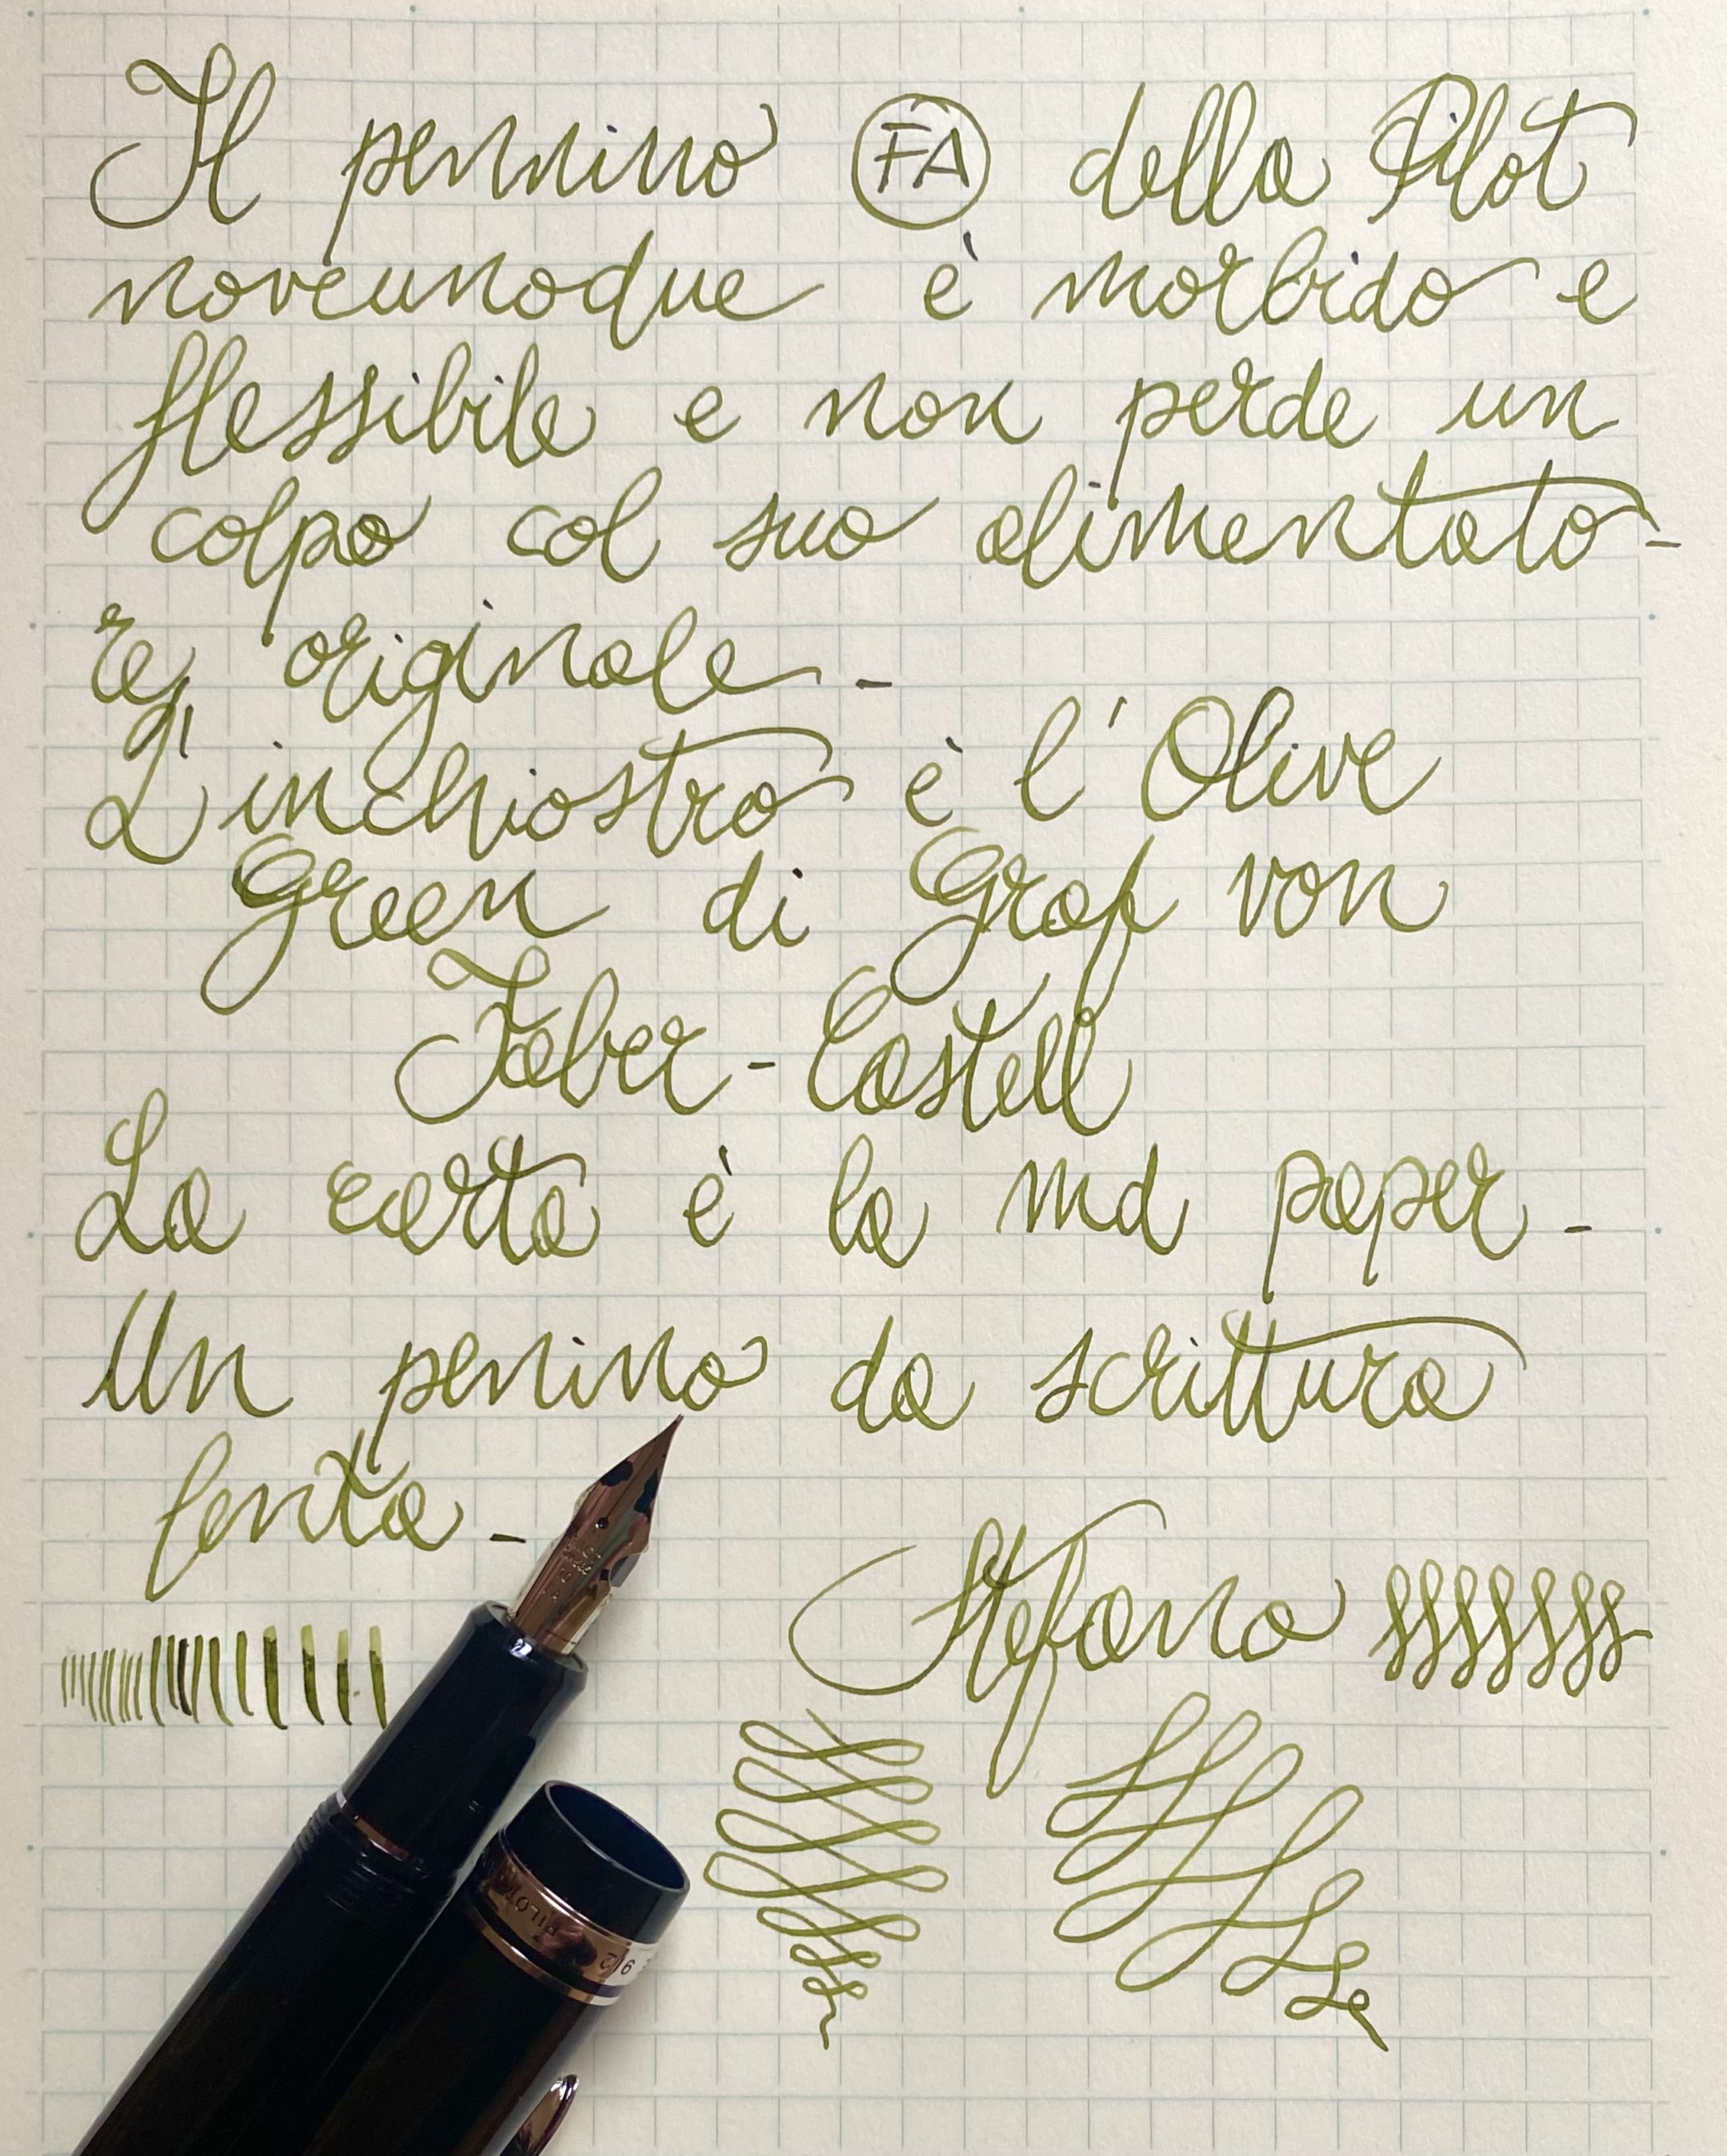 Il pennino FA della Pilot
noveunodue è morbido e
flessibile e non perde un
colpo col suo alimentato-
re originale -
L'inchiostro è l'Olive
Green di Graf von
Faber-Castell
La carta è la md paper -
Un penino da scrittura
lenta -
Stefano
PILOT